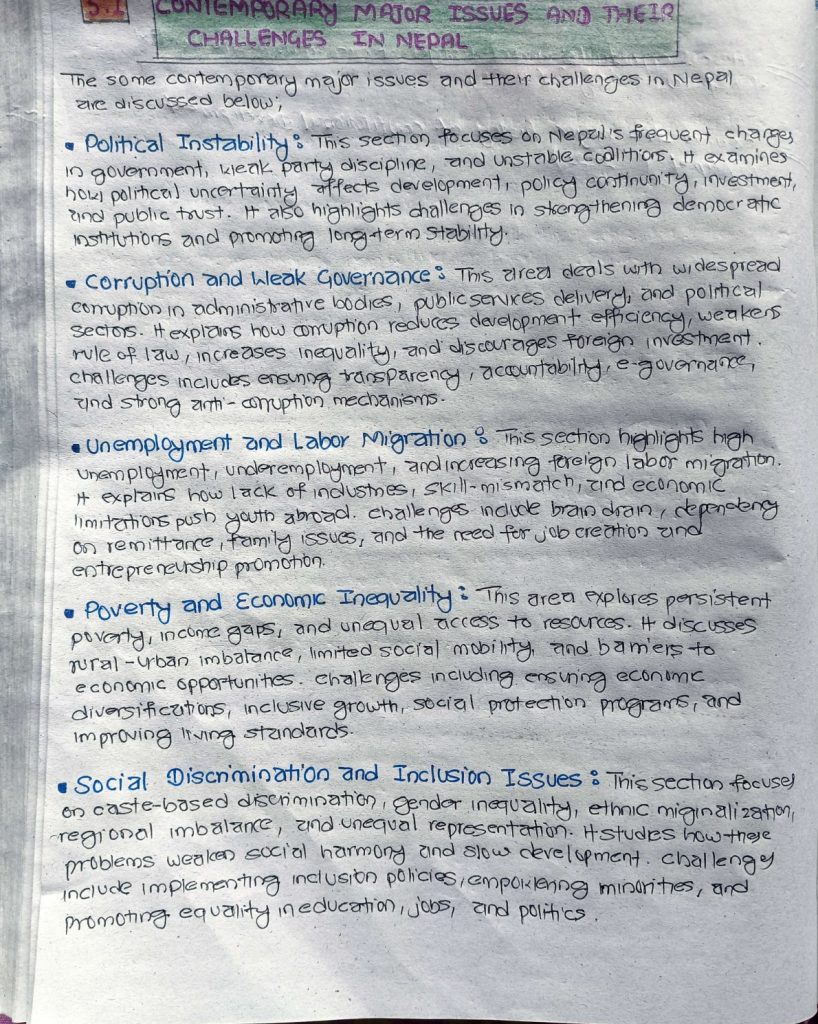 5.1 CONTEMPORARY MAJOR ISSUES AND THEIR
CHALLENGES IN NEPAL
The some contemporary major issues and their challenges in Nepal
are discussed below;
• Political Instability: This section focuses on Nepal's frequent changes
in government, weak party discipline, and unstable coalitions. It examines
how political uncertainty affects development, policy continunity, investment,
and public trust. It also highlights challenges in strengthening democratic
institutions and promoting long-term stability.
• Corruption and Weak Governance: This area deals with widespread
corruption in administrative bodies, public services delivery, and political
sectors. It explains how corruption reduces development efficiency, weakens
rule of law, increases inequality, and discourages foreign investment.
challenges includes ensuring transparency, accountability, e-governance,
and strong anti-corruption mechanisms.
• Unemployment and Labor Migration: This section highlights high
unemployment, underemployment, and increasing foreign labor migration.
It explains how lack of industries, skill-mismatch, and economic
limitations push youth abroad. challenges include brain drain, dependency
on remittance, family issues, and the need for job creation and
entrepreneurship promotion.
• Poverty and Economic Inequality: This area explores persistent
poverty, income gaps, and unequal access to resources. It discusses
rural-urban imbalance, limited social mobility, and barriers to
economic opportunities. challenges including ensuring economic
diversifications, inclusive growth, social protection programs, and
improving living standards.
• Social Discrimination and Inclusion Issues: This section focuses
on caste-based discrimination, gender inequality, ethnic miginalization,
regional imbalance, and unequal representation. It studies how these
problems weaken social harmony and slow development. challenges
include implementing inclusion policies, empowering minorities, and
promoting equality in education, jobs, and politics.